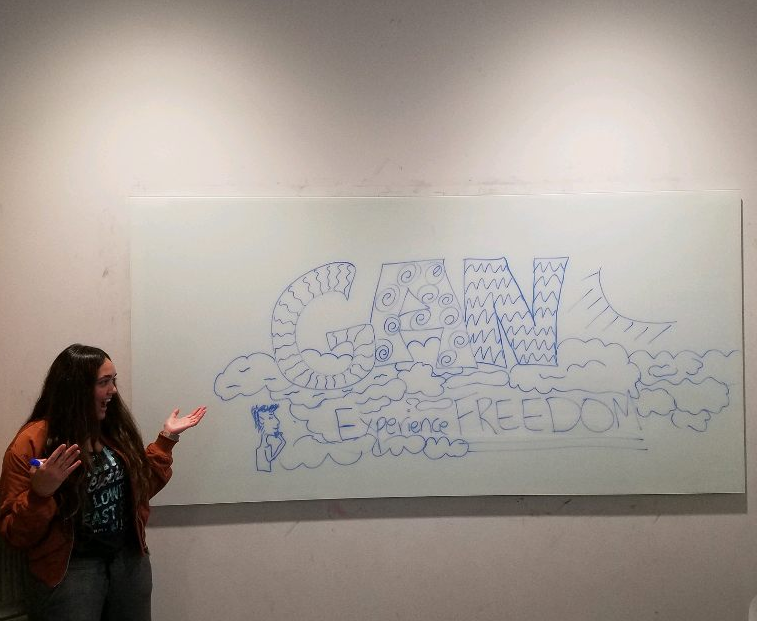 GAN
Experience FREEDOM
LOW
EAST